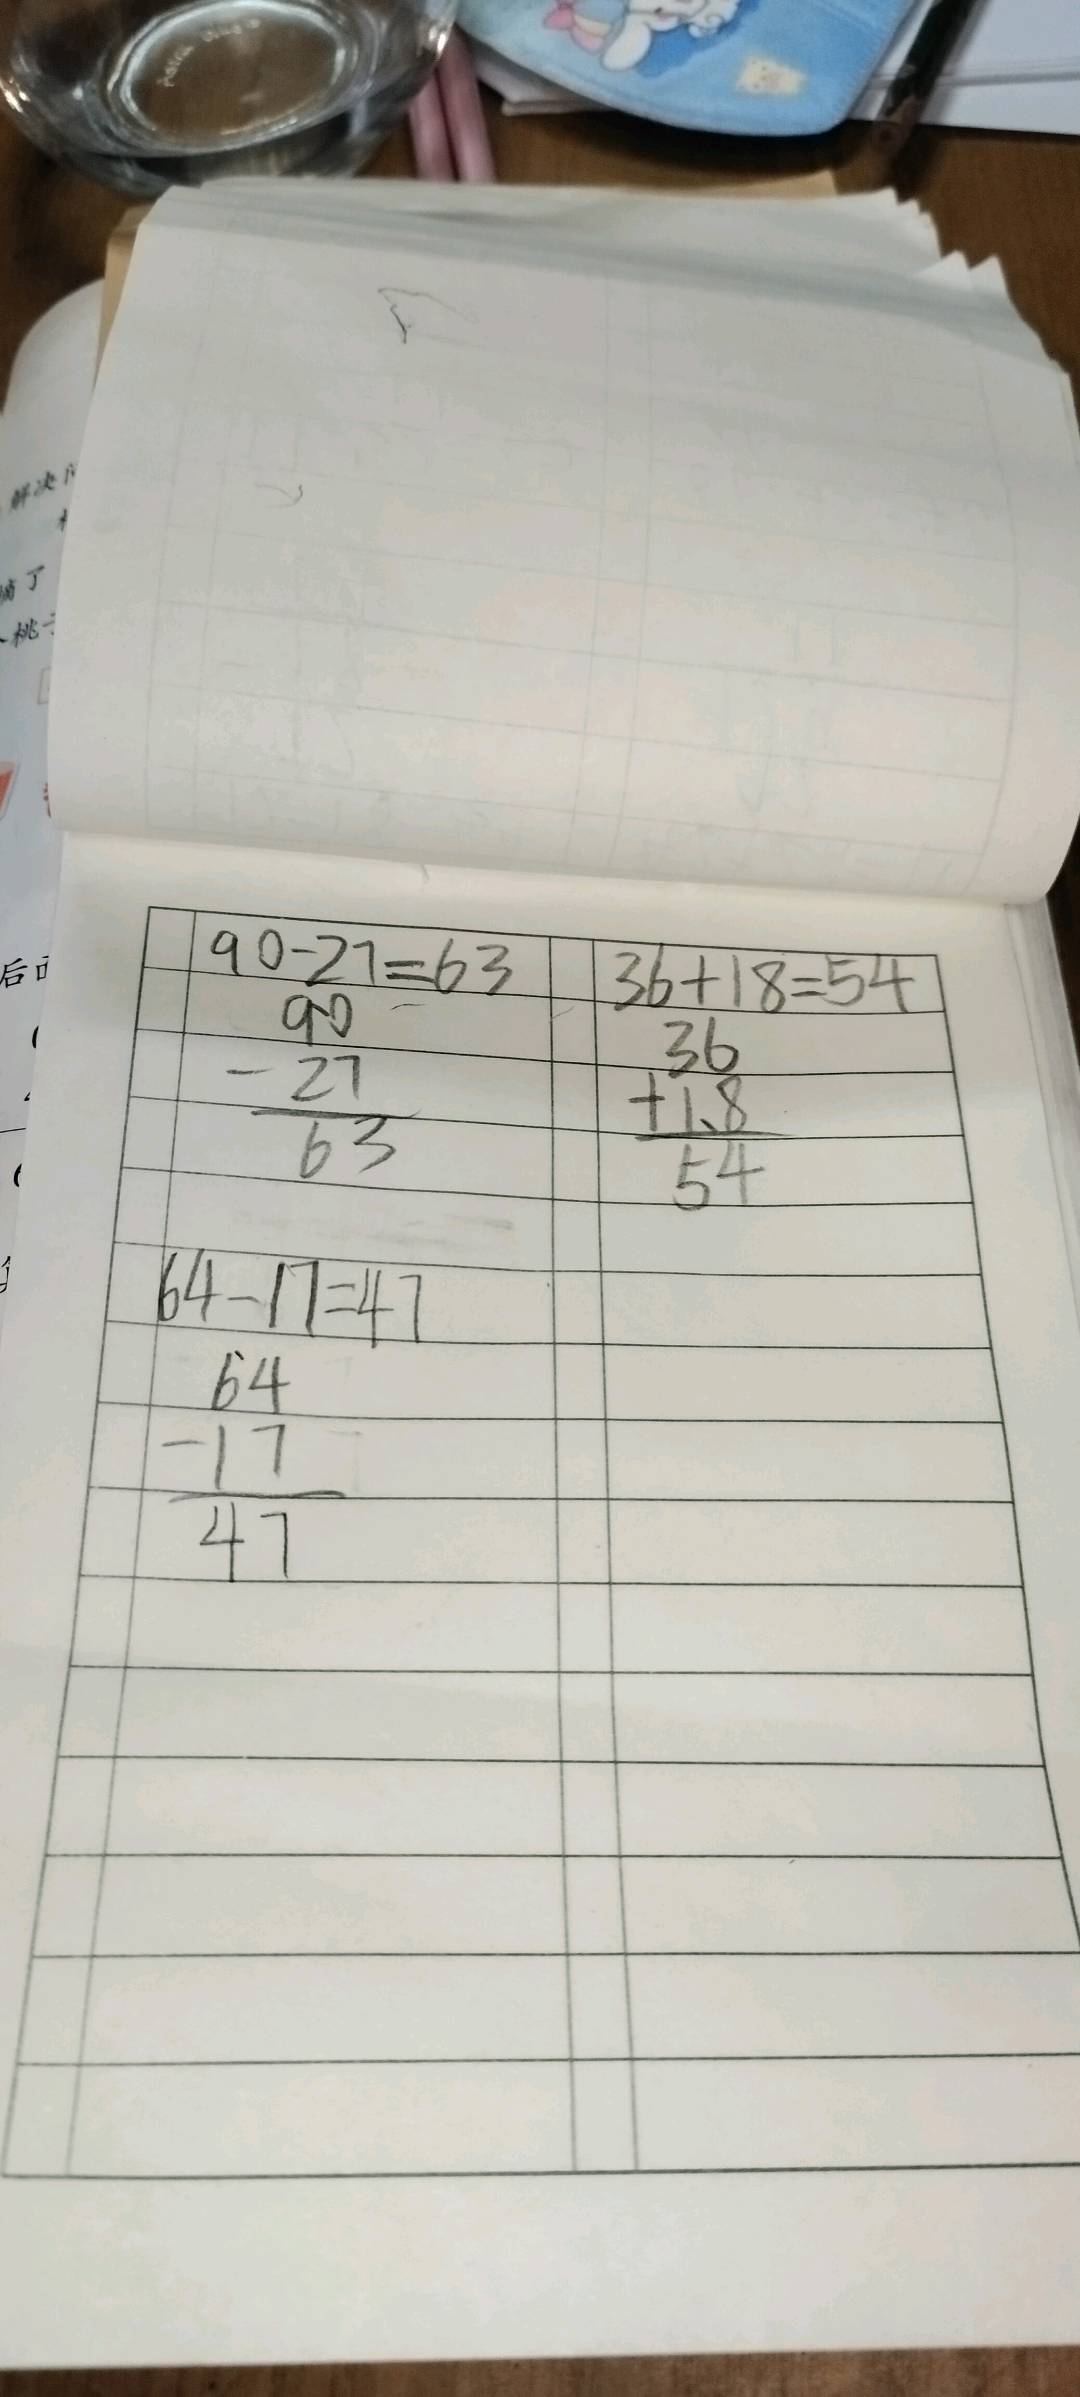 解决
摘了
个桃子
后
90-27=63
90
-27
63
36+18=54
36
+18
54
64-17=47
64
-17
47